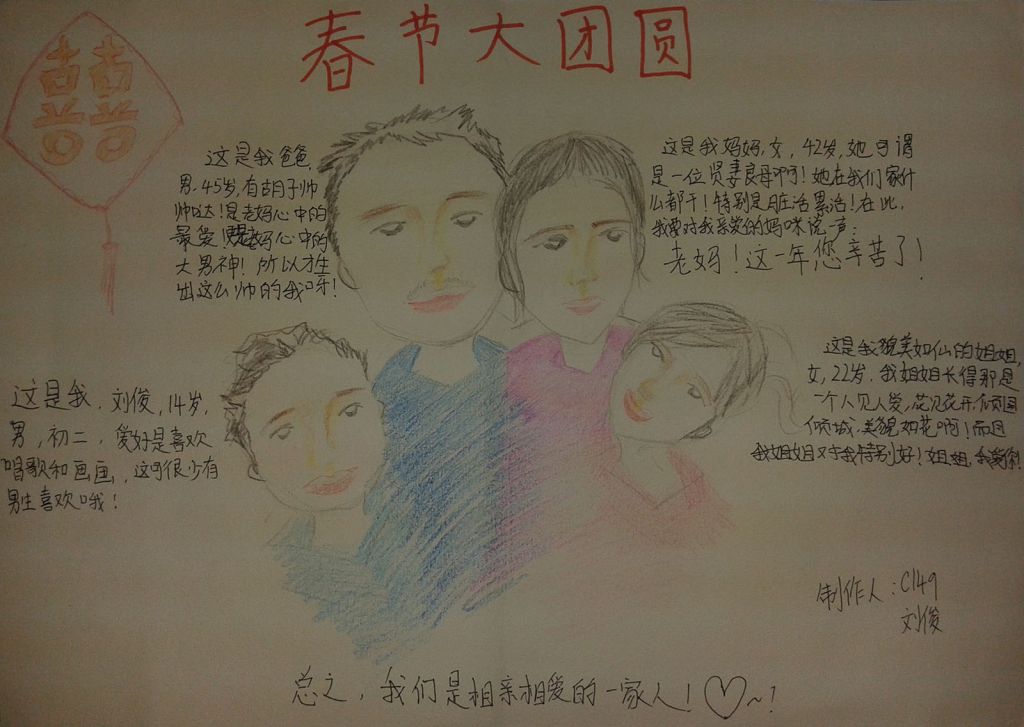 春节大团圆
囍
这是我爸爸,
男,45岁,有胡子帅
帅哒!是老妈心中的
最爱!是老妈心中的
大男神!所以才生
出这么帅的我呀!
这是我妈妈,女,42岁,她可谓
是一位贤妻良母啊!她在我们家什
么都干!特别是脏活累活!在此,
我要对我亲爱的妈咪说一声:
老妈!这一年您辛苦了!
这是我,刘俊,14岁,
男,初二,爱好是喜欢
唱歌和画画,这可很少有
男生喜欢哦!
这是我貌美如仙的姐姐,
女,22岁,我姐姐长得那是
一个人见人爱,花见花开,倾国
倾城,美貌如花啊!而且
我姐姐对我特别好!姐姐,我爱你!
制作人:C149
刘俊
总之,我们是相亲相爱的一家人!♡~!